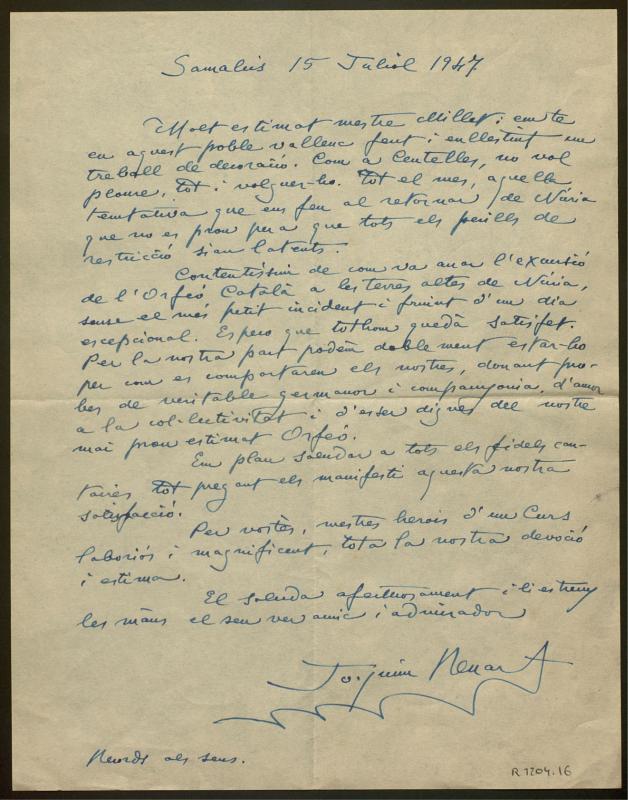 Samalús 15 Juliol 1947
Molt estimat mestre Millet; em te
en aquest poble vallenc fent i enllestint un
treball de decoració. Com a Centelles, no vol
ploure, tot i volguer-ho. Tot el mes, aquella
tentativa que ens feu al retornar de Núria
que no es prou pera que tots els perills de
restricció sian latents.
Contentíssim de com va anar l'excursió
de l'Orfeó Català a les terres altes de Núria,
sense el més petit incident i fruint d'un dia
escepcional. Espero que tothom quedà satisfet.
Per la nostra part podem doblement estar-ho
per com es comportaren els nostres, donant pro-
bes de veritable germanor i companyonia, d'amor
a la col·lectivitat i d'esser dignes del nostre
mai prou estimat Orfeó.
Em plau saludar a tots els fidels can-
taires tot pregant els manifesti aquesta nostra
satisfacció.
Per vostès, mestres herois d'un Curs
laboriós i magnificent, tota la nostra devoció
i estima.
El saluda afectuosament i li estreny
les mans el seu ver amic i admirador
Joaquim Renart
Records als seus.
R 1204.16